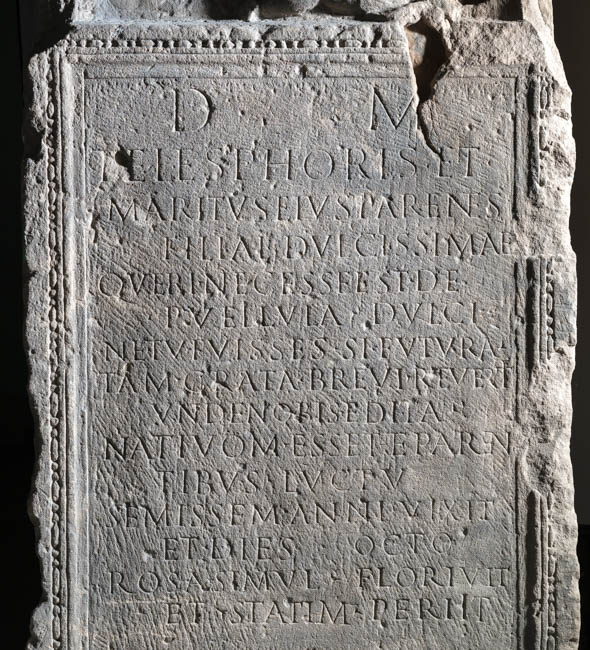 D M
TELESPHORIS·ET
MARITVS·EIVS·PARENS
FILIAE·DVLCISSIMAE
QVERI·NECESSE·EST·DE
PVELLVLA·DVLCI·
NE·TV·FVISSES·SI·FVTVRA·
TAM·GRATA·BREVI·REVERTI
VNDE·NOBIS·EDITA·
NATIVOM·ESSET·ET·PAREN
TIBVS·LVCTV
SEMISSEM·ANNI·VIXIT
ET·DIES OCTO
ROSA·SIMVL·FLORIVIT
ET·STATIM·PERIIT